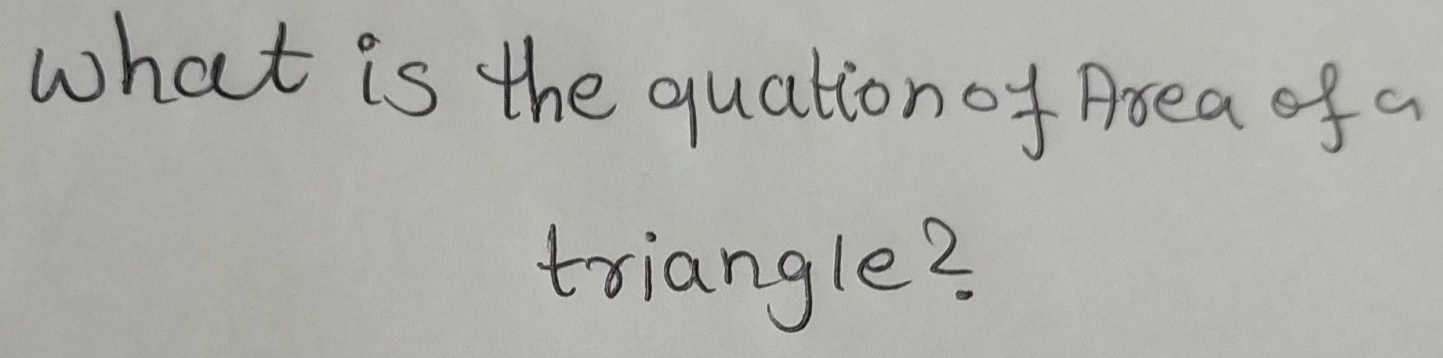 what is the quation of Area of a
triangle?